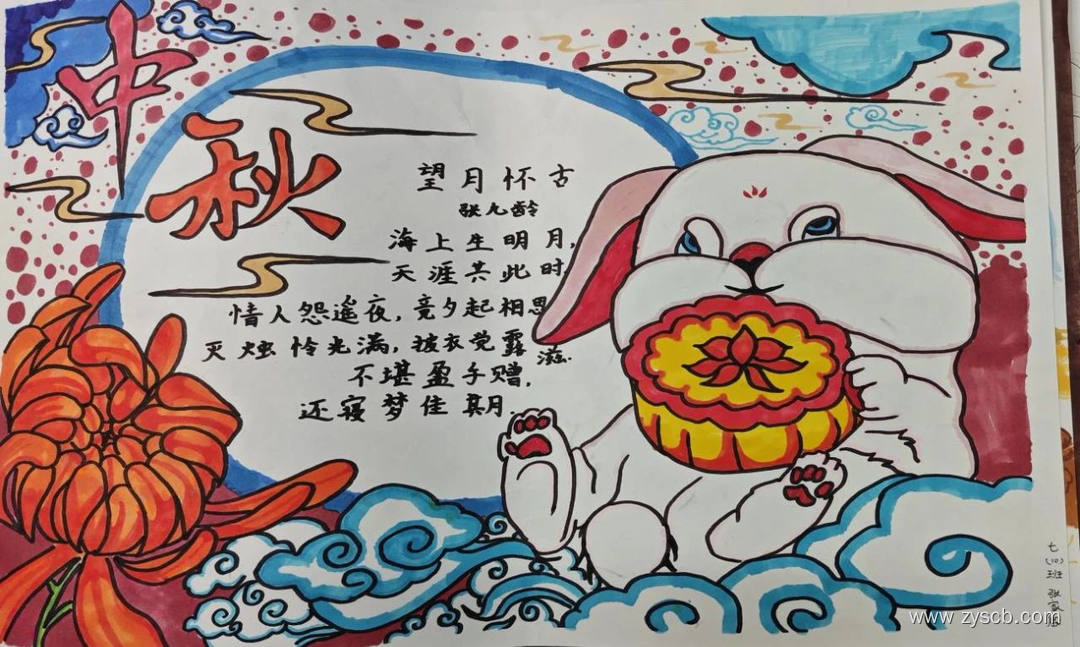 中秋
望月怀古
张九龄
海上生明月,
天涯共此时
情人怨遥夜,竞夕起相思
灭烛怜光满,披衣觉露滋.
不堪盈手赠,
还寝梦佳期.
七(10)班 张家
www.zyscb.com